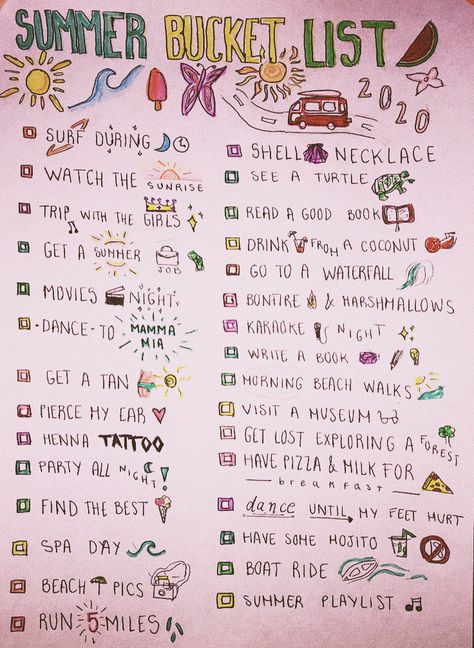 SUMMER BUCKET LIST
2020
SURF DURING
WATCH THE SUNRISE
TRIP WITH THE GIRLS
GET A SUMMER JOB
MOVIES NIGHT
DANCE TO MAMMA MIA
GET A TAN
PIERCE MY EAR
HENNA TATTOO
PARTY ALL NIGHT!
FIND THE BEST
SPA DAY
BEACH PICS
RUN 5 MILES
SHELL NECKLACE
SEE A TURTLE
READ A GOOD BOOK
DRINK FROM A COCONUT
GO TO A WATERFALL
BONFIRE & MARSHMALLOWS
KARAOKE NIGHT
WRITE A BOOK
MORNING BEACH WALKS
VISIT A MUSEUM
GET LOST EXPLORING A FOREST
HAVE PIZZA & MILK FOR
breakfast
dance UNTIL MY FEET HURT
HAVE SOME MOJITO
BOAT RIDE
SUMMER PLAYLIST